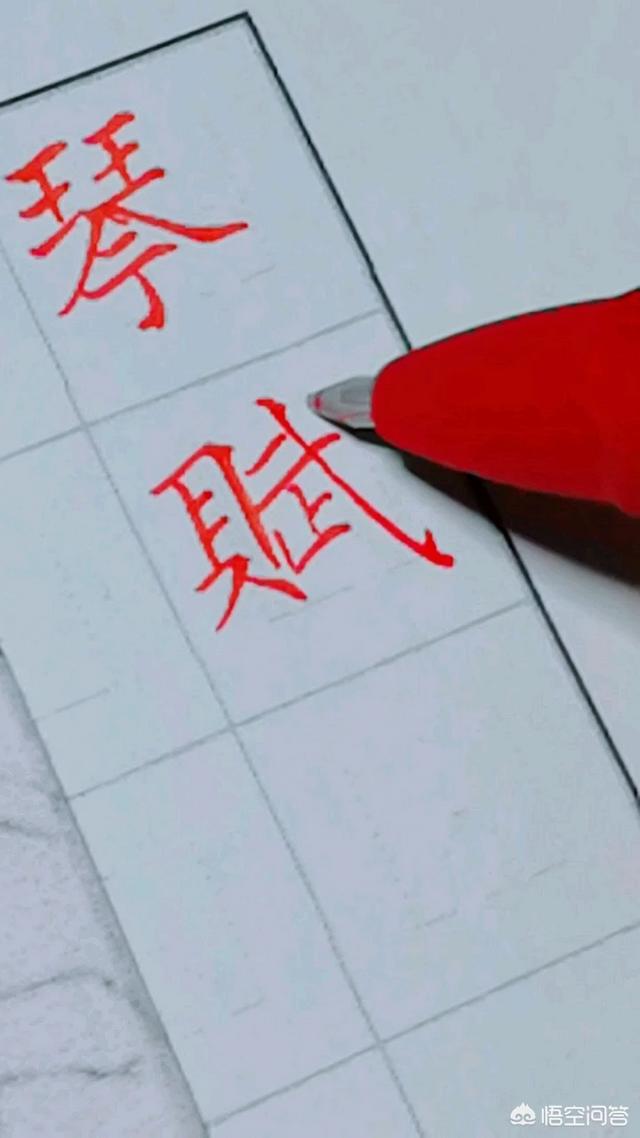 琴賦
悟空问答